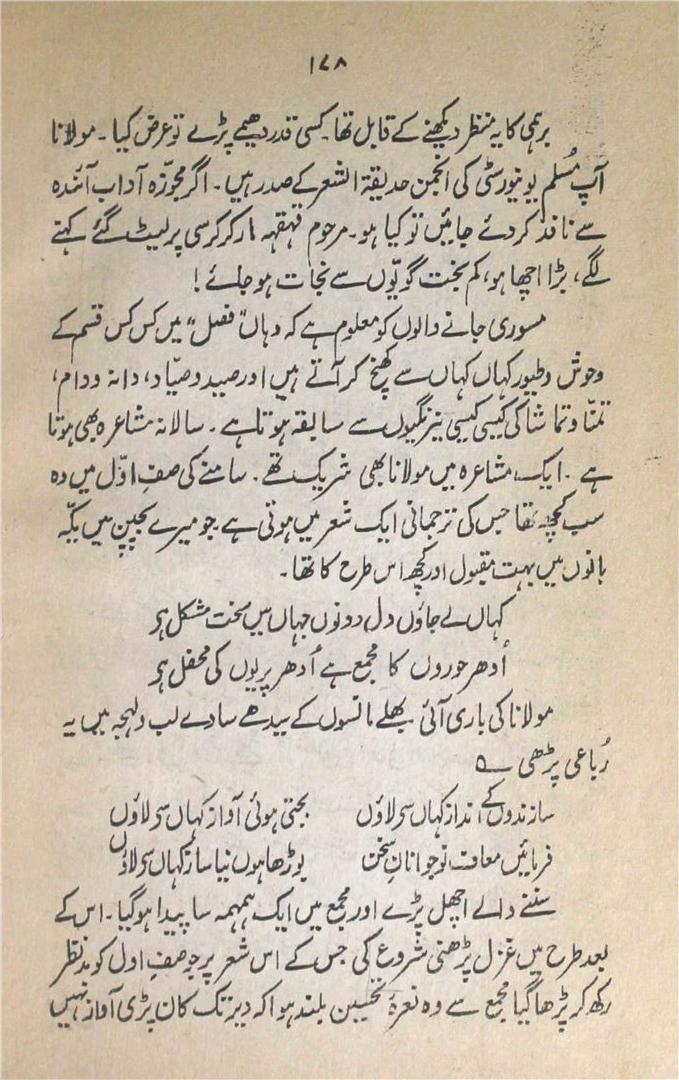 ۱۷۸
برہمی کا یہ منظر دیکھنے کے قابل تھا۔ کسی قدر دھیمے پڑے تو عرض کیا۔ مولانا
آپ مُسلم یونیورسٹی کی انجمن حدیقۃ الشعر کے صدر ہیں۔ اگر مجوّزہ آداب آئندہ
سے نافذ کر دئے جائیں تو کیا ہو۔ مرحوم قہقہہ مار کر کرسی پر لیٹ گئے کہنے
لگے، بڑا اچھا ہو، کم بخت گویّوں سے نجات ہو جائے!
مسوری جانے والوں کو معلوم ہے کہ وہاں "فصل" میں کس کس قسم کے
وحوش و طیور کہاں کہاں سے کھنچ کر آتے ہیں اور صید و صیّاد، دانہ و دام،
تمنّا و تماشا کی کیسی کیسی نیرنگیوں سے سابقہ ہوتا ہے۔ سالانہ مشاعرہ بھی ہوتا
ہے۔ ایک مشاعرہ میں مولانا بھی شریک تھے۔ سامنے کی صفِ اوّل میں وہ
سب کچھ تھا جس کی ترجمانی ایک شعر میں ہوتی ہے جو میرے بچپن میں یکّہ
بانوں میں بہت مقبول اور کچھ اس طرح کا تھا۔
کہاں لے جاؤں دل دونوں جہاں میں سخت مشکل ہو
اُدھر حوروں کا مجمع ہے اُدھر پریوں کی محفل ہو
مولانا کی باری آئی بھلے مانسوں کے سیدھے سادے لب و لہجہ میں یہ
رُباعی پڑھی ؎
سازندوں کے انداز کہاں سے لاؤں بجتی ہوئی آواز کہاں سے لاؤں
فرمائیں معاف نوجوانانِ سخن بوڑھا ہوں نیا ساز کہاں سے لاؤں
سننے والے اچھل پڑے اور مجمع میں ایک ہمہمہ سا پیدا ہو گیا۔ اس کے
بعد طرح میں غزل پڑھنی شروع کی جس کے اس شعر پر جو صفِ اول کو مدنظر
رکھ کر پڑھا گیا مجمع سے وہ نعرۂ تحسین بلند ہوا کہ دیر تک کان پڑی آواز نہیں